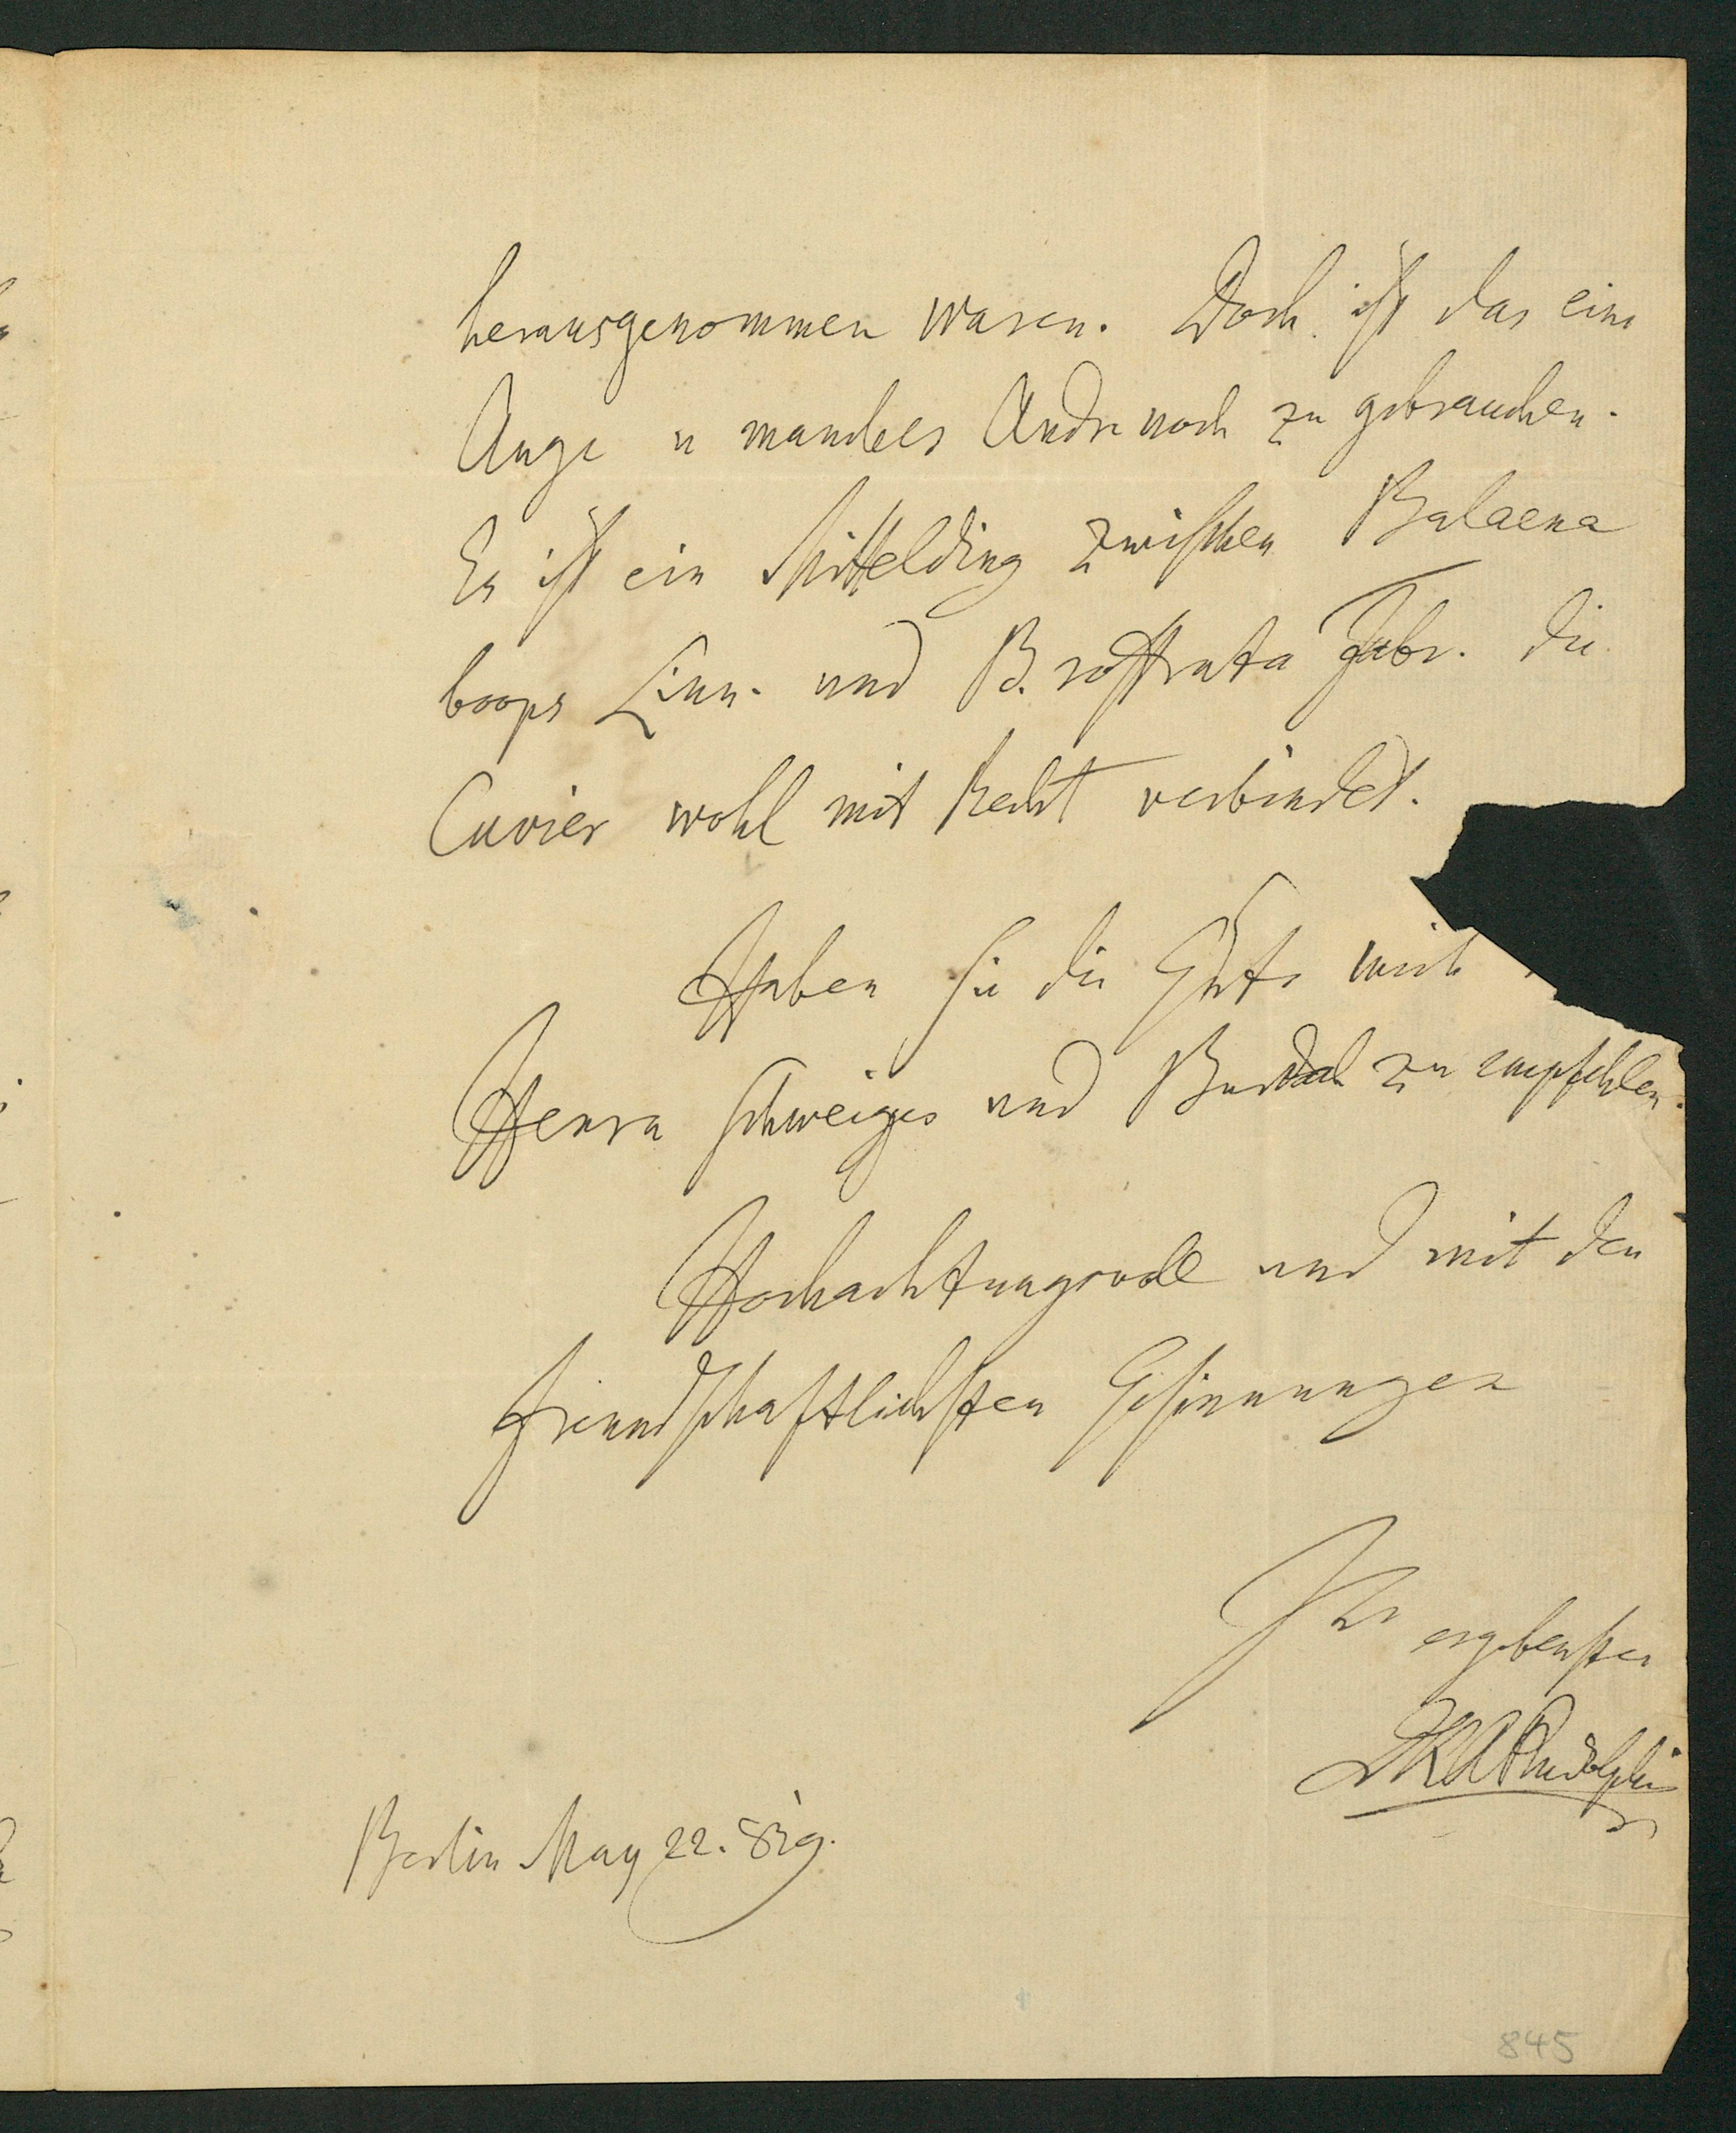 herausgenommen waren. Doch ist das eine
Auge u manches Andre noch zu gebrauchen.
Es ist ein Mittelding zwischen Balaena
boops Linn. und B. rostrata Fabr. die
Cuvier wohl mit Recht verbindet.
Haben Sie die Güte mich
Herrn Schweigger und Burdach zu empfehlen.
Hochachtungsvoll und mit den
freundschaftlichsten Gesinnungen
Ihr ergebenster
DKARudolphi
Berlin May 22. 819.
845